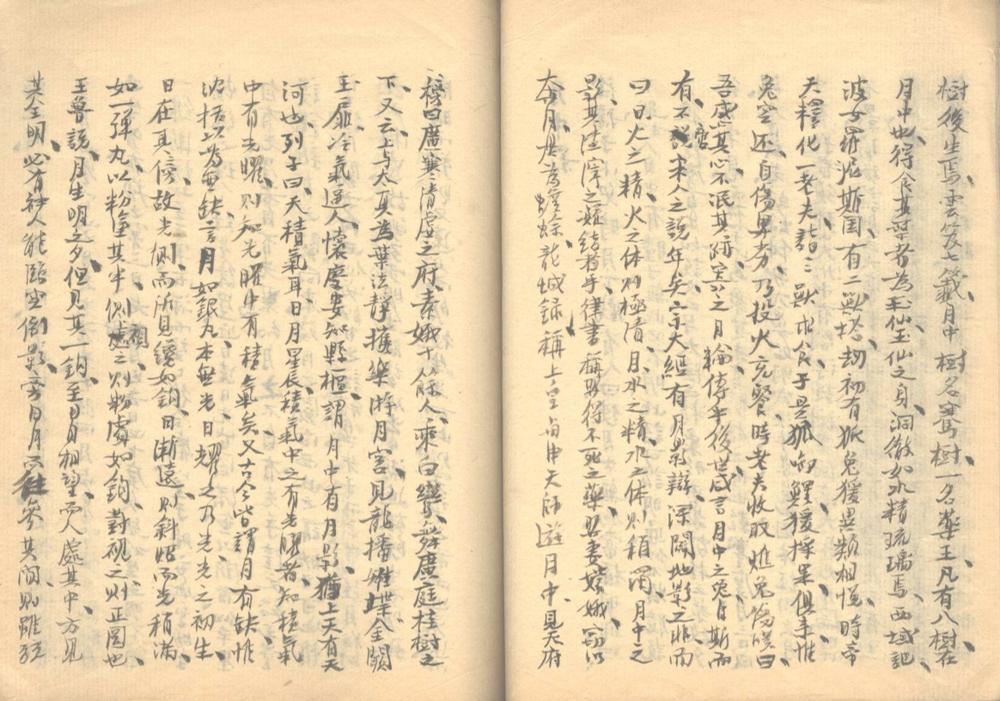 樹後生焉雲笈七籤月中樹名騫樹一名藥王凡有八樹在
月中也得食其葉者為玉仙玉仙之身洞徹如水精琉璃焉西域記
波女羅泥斯国有二獸塔劫初有狐兔猨異類相恱時帝
天釋化一老夫詣三獸求食于是狐向鯉猨採果俱来惟
兔空还自傷卑劣乃投火充餐時老夫收取燋兔傷嘆曰
吾感其心不泯其跡寄之月輪傳乎後世咸言月中之兔自斯而
有不說本人之說年矣宗大經有月黑辯深闢地影之非而
曰日火之精火之体則極清月水之精水之体則稍濁月中之
影其渣滓之
律書稱羿得不死之藥羿妻嫦娥窃以
奔月是為蟾蜍龍城録稱上皇与申天師遊月中見天府
榜曰廣寒清虛之府素娥十餘人乘白鸞舞廣庭桂樹之
下又云上与太真為葉法靜擁樂游月宫見龍播雉堞金闕
玉扉冷氣逼人懷慶安知縣樞謂月中有月影猶上天有天
河也列子曰天積氣耳日月星辰積氣中之有光曜者知積氣
中有光曜則知光曜中有積氣矣又古今皆謂月有缺惟
沈括以為無缺言月如銀丸本無光日耀之乃光光之初生
日在其傍故光側而所見纔如鈎日漸遠則斜照而光稍滿
如一彈丸以粉塗其半側視之則粉處如鈎對視之則正圓也
王獸說月生明之夕但見其一鈎至日月相望而人處其中方見
其全明必有神人能臨空倒影旁日月而往參其间則雖弦